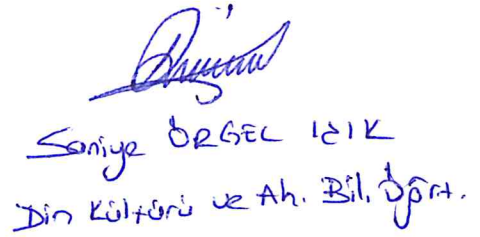 Saniye ÖRGEL IŞIK
Din Kültürü ve Ah. Bil. Öğrt.